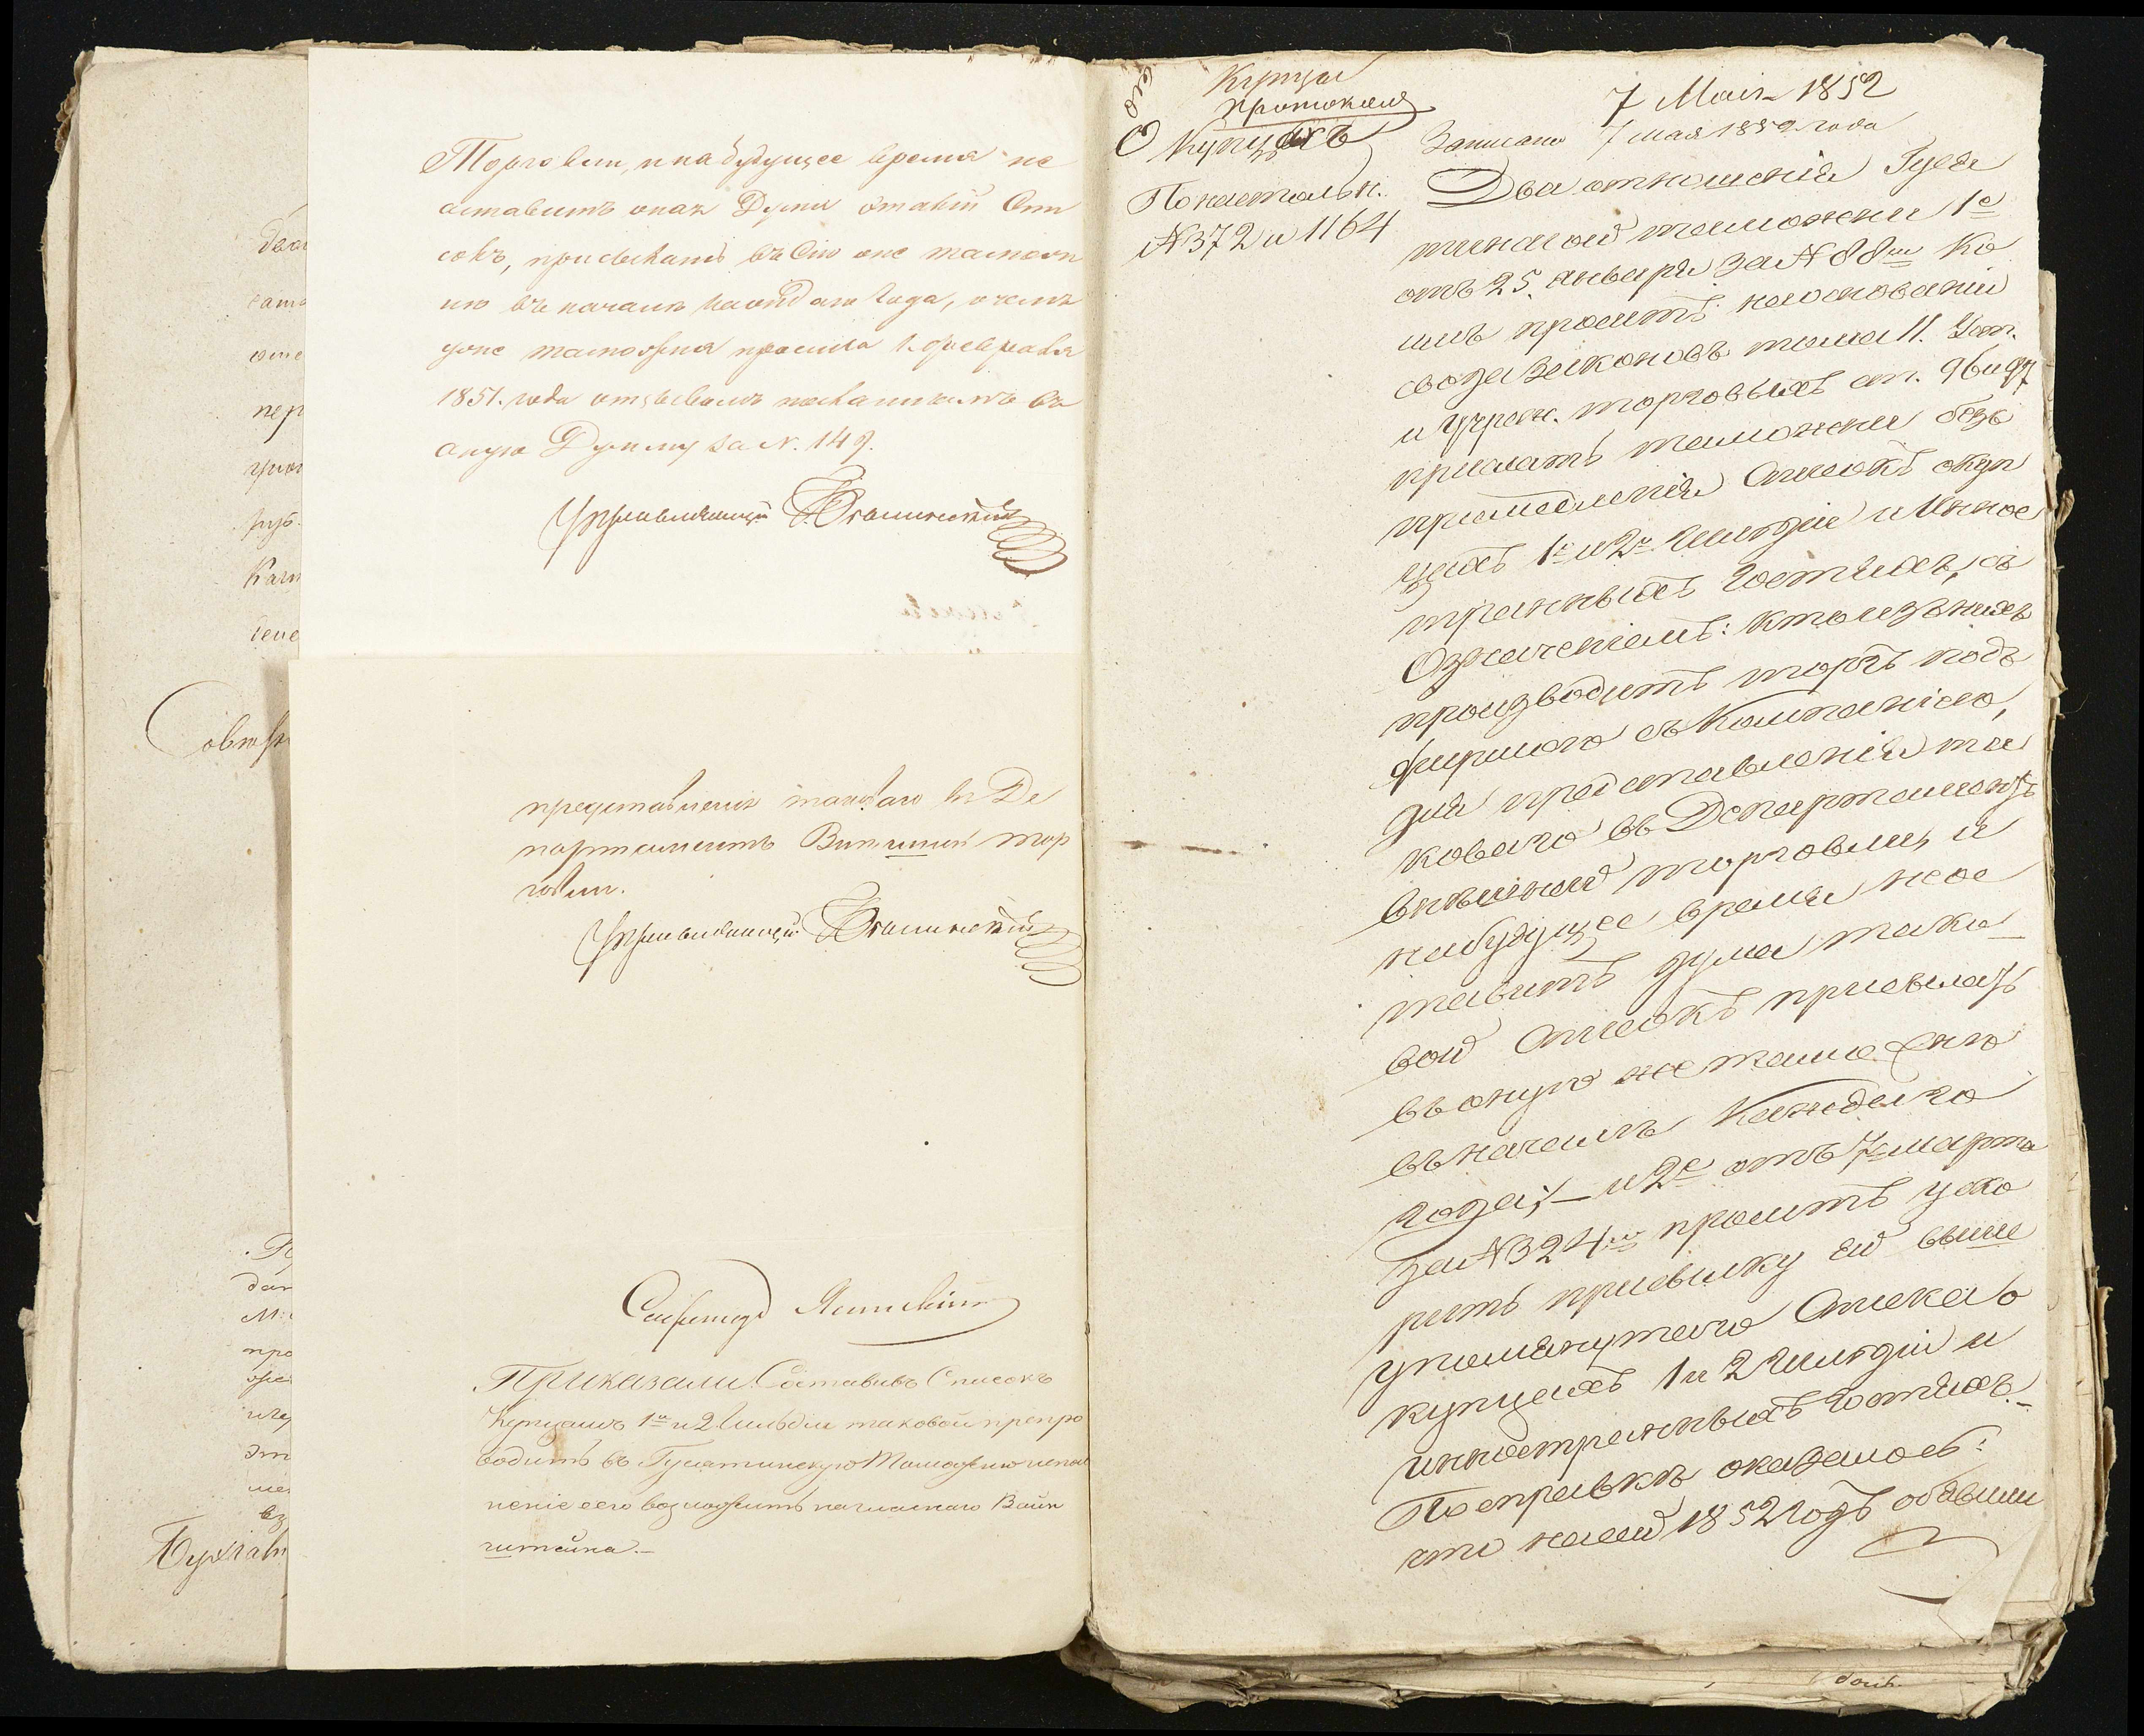 Торговли, и на будущее время не
оставитъ оная Дума таковый Спи
сокъ, присылать въ сію же таможн
ню въ началѣ каждаго года, о чемъ
уже таможня просила 1 февраля
1851. года отзывомъ посланнымъ въ
оную Думу за N. 149.
Управляющій
представленія таковаго въ Де
партаментъ Внѣшней тор
говли.
Управляющій
Секретарь
Приказали: Составивъ Списокъ
Купцамъ 1й и 2 Гильдіи таковой препро
водить въ Гусятинскую Таможню испол
неніе сего возложить на гласнаго Вайн
штейна.
Бухгалт
Копія
протокола
О Купцахъ
По настольн.
N 372 и 1164
7 Мая 1852
Записано 7 мая 1852 года
Два отношенія Гуся
тинской таможни 1е
отъ 25 января за N 88м Ко
имъ проситъ на основаніи
свода законовъ тома 11. Уст.
и Учреж. торговыхъ ст. 96 и 97
прислать таможни безъ
промедленія Списокъ о куп
цахъ 1й и 2й Гильдіи и Иннос
транныхъ гостяхъ, съ
Означеніемъ: кто изъ нихъ
производитъ торгъ подъ
фирмого съ Компаніею,
для представленія та
коваго въ Департаментъ
внѣшней торговли, и
на будущее время не ос
тавитъ дума тако
вой Списокъ присылать
въ оную же таможню
въ началѣ каждаго
года; – и 2е отъ 7 марта
за N 324м проситъ уско
рить присылку ей выше
упомянутаго Списка о
купцахъ 1 и 2 Гильдіи и
инностранныхъ гостяхъ. –
По справкѣ оказалось:
что на сей 1852 годъ объяви